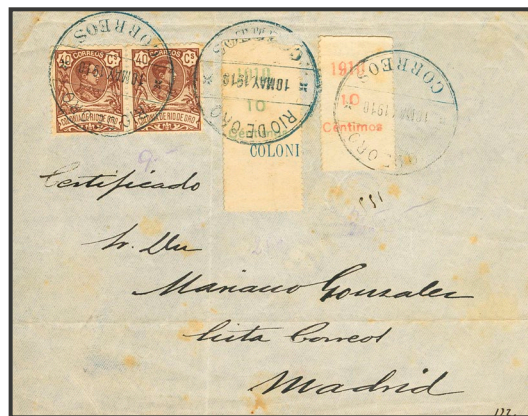 CORREOS
40 Cs 40 Cs
COLONIA DE RIO DE ORO COLONIA DE RIO DE ORO
CORREOS
10 MAY 1918
RIO DE ORO
10
Céntimos
COLONI
191
10
Céntimos
CORREOS
10 MAY 1918
Certificado
Sr. Dn
Mariano Gonzalez
Lista Correos
Madrid